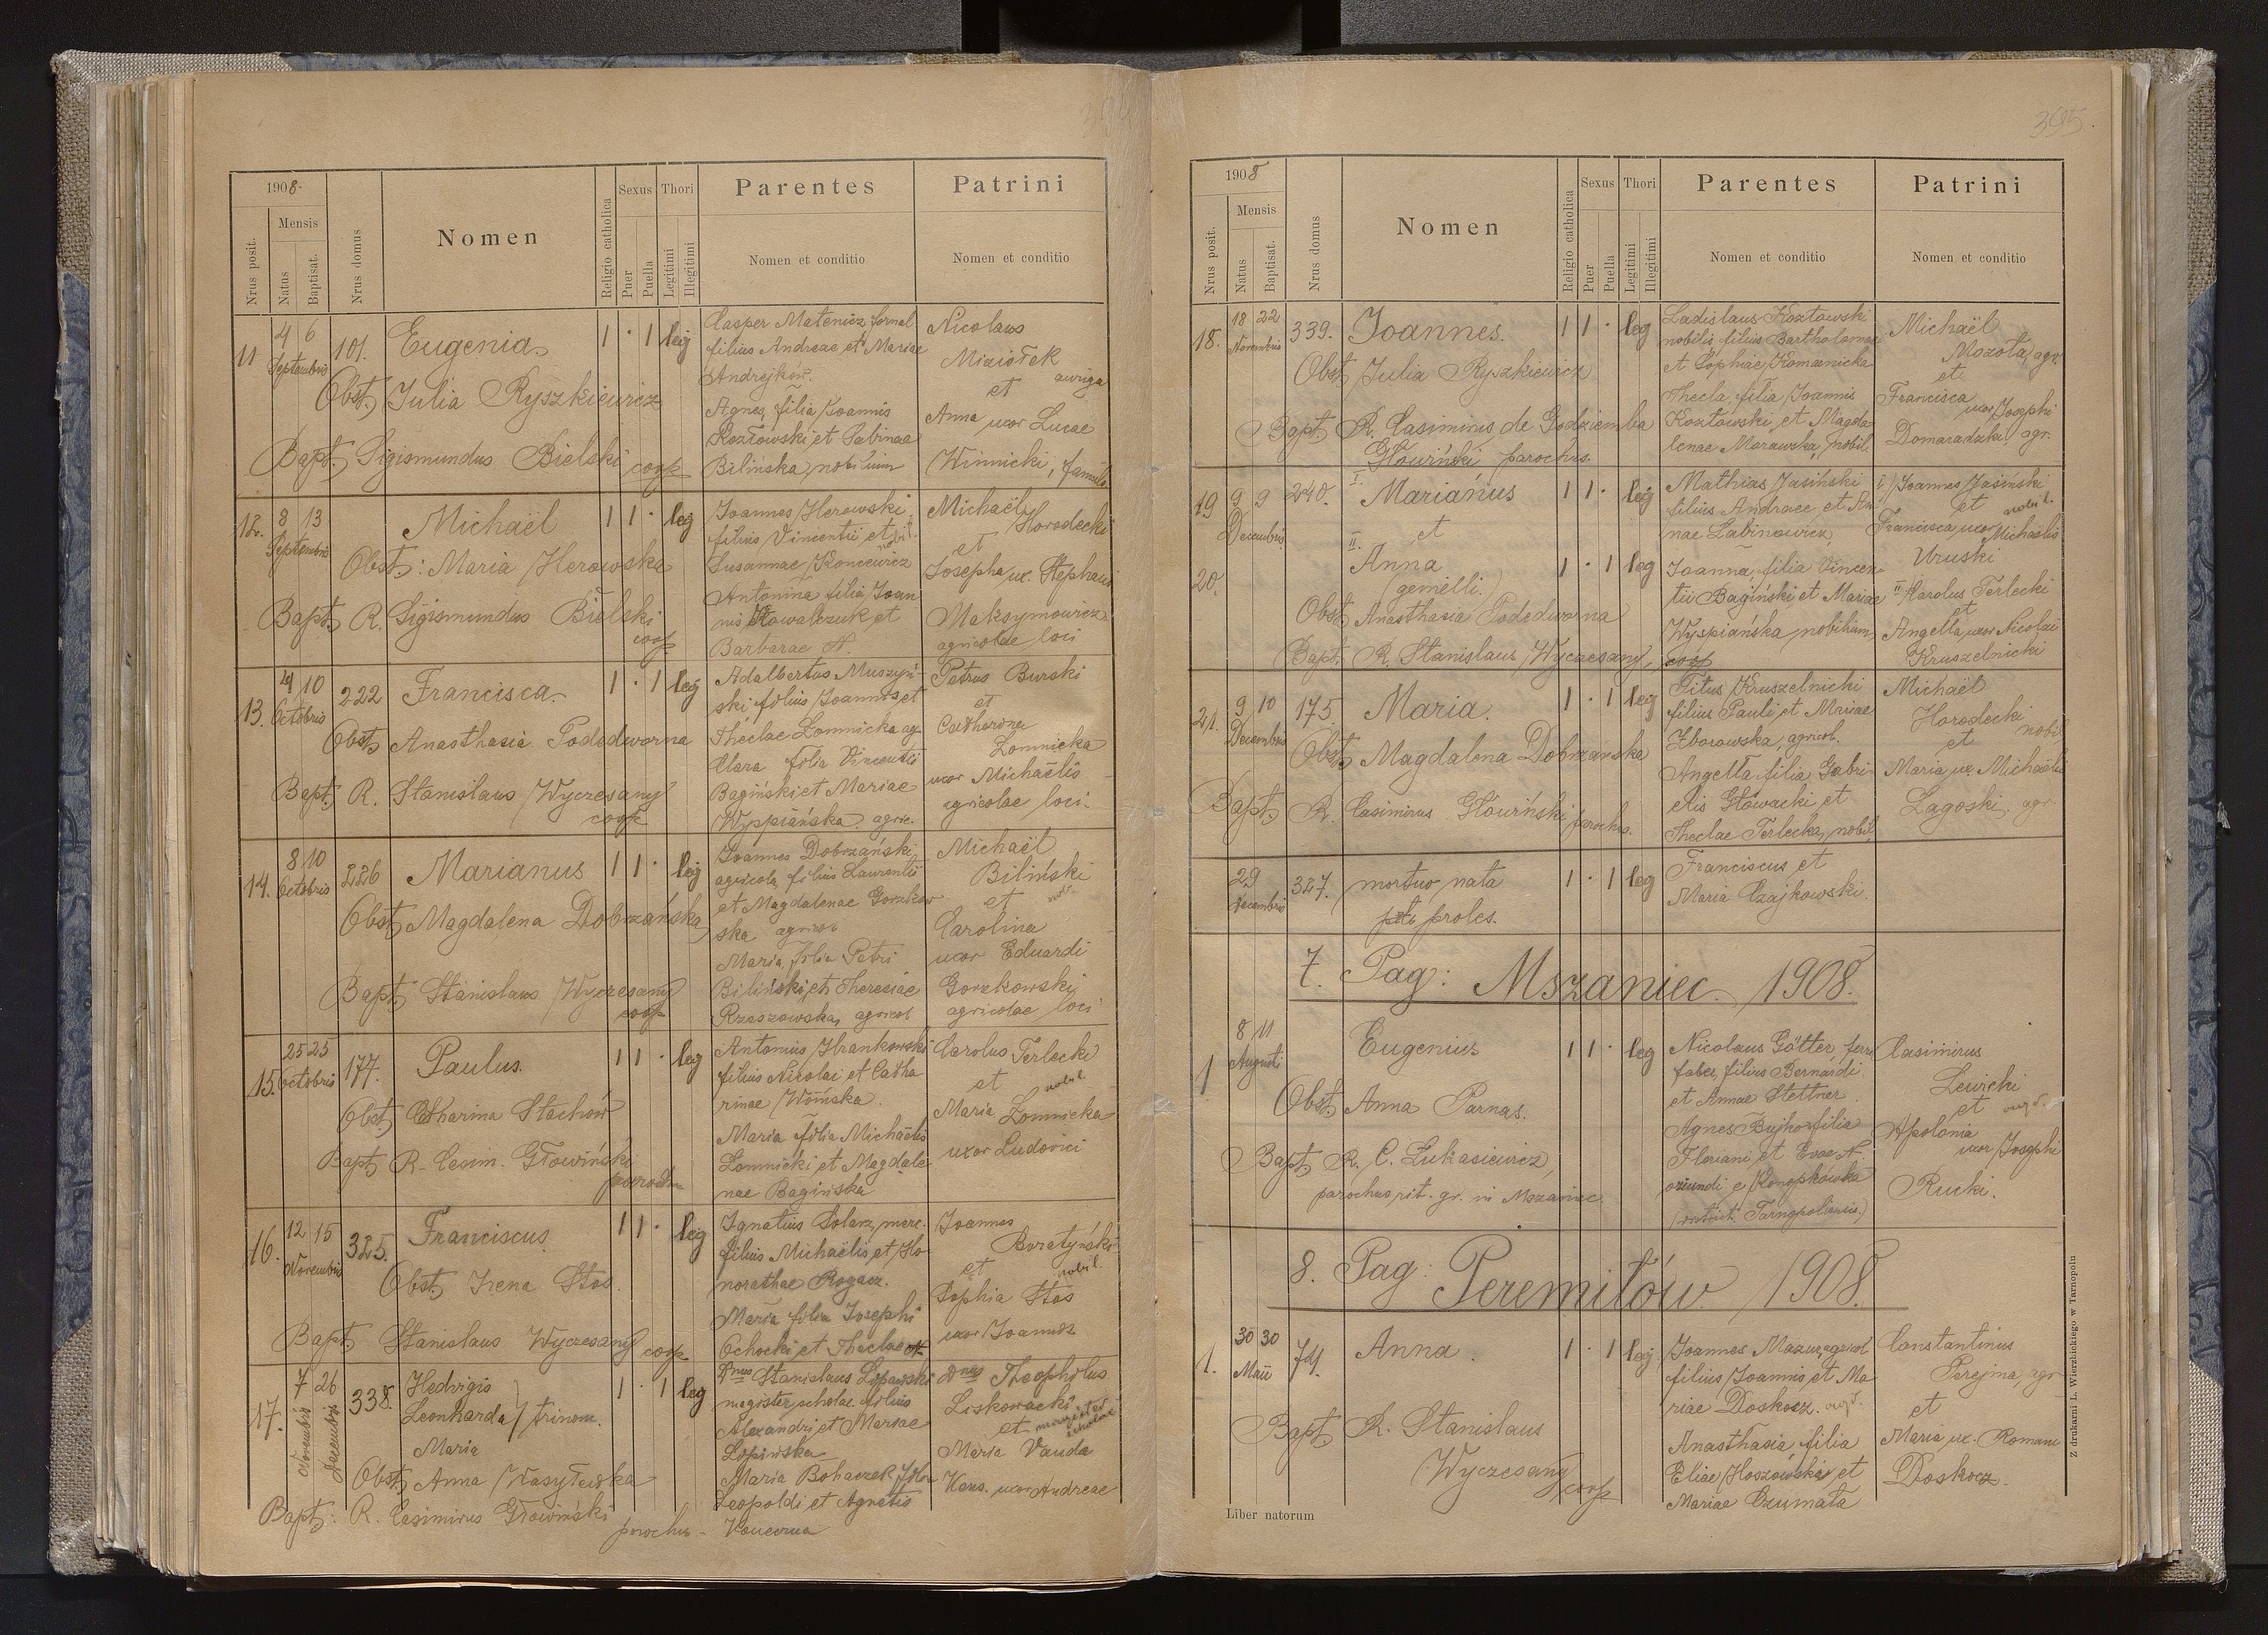 1908.
Nrus posit.
Mensis
Natus
Baptisat.
Nrus domus
Nomen
Religio catholica
Sexus
Puer
Puella
Thori
Legitimi
Illegitimi
Parentes
Nomen et conditio
Patrini
Nomen et conditio
11
4 6
Septembris
101.
Eugenia
1 · 1 leg
Obst. Julia Ryszkiewicz
Bapt. Sigismundus Bielski coop
Casper Matenicz fornal
filius Andreae et Mariae
Andrejków.
Agnes, filia Joannis
Kozłowski et Sabinae
Bilińska, nobilium
Nicolaus
Miziołek
auriga
et
Anna uxor Lucae
Winnicki,
12.
8 13
Septembris
Michaël
1 1 · leg
Obst: Maria Herowska
Bapt. R. Sigismundus Bielski
coop
Joannes Herowski
filius Vincentii et nobil.
Susannae Koncewicz
Antonina filia Joan
nis Kowalczuk et
Barbarae N.
Michaël
Horodecki
et
Josepha ux. Stephani
Maksymowicz
agricolae loci
13.
4 10
Octobris
222
Francisca
1 · 1 leg
Obst. Anasthasia Podedworna
Bapt. R. Stanislaus Wyczesany
coop
Adalbertus Muszyń-
ski filius Joannis et
Theclae Łomnicka ag
Clara filia Vincentii
Bagiński et Mariae
Wyspiańska agric.
Petrus Burski
et
Catharina
Łomnicka
uxor Michaëlis
agricolae loci.
14.
8 10
Octobris
226
Marianus
1 1 · leg
Obst. Magdalena Dobrzańska
Bapt. Stanislaus Wyczesany
coop
Joannes Dobrzański
agricola, filius Laurentii
et Magdalenae Gorzkow
ska agricol
Maria, filia Petri
Biliński et Theresiae
Rzeszowska, agricol
Michaël
Biliński
et
Carolina
uxor Eduardi
Gorzkowski
agricolae loci
15.
25 25
Octobris
177.
Paulus.
1 1 · leg
Obst. Catharina Stachów
Bapt R. Casim. Głowiński
parochus
Antonius Hrankowski
filius Nicolai et Catha
rinae Wońska.
Maria filia Michaëlis
Łomnicki et Magdale
nae Bagińska
Carolus Terlecki
et nobil.
Maria Łomnicka
uxor Ludovici
16.
12 15
Novembris
325.
Franciscus.
1 1 · leg
Obst. Irena Stos.
Bapt. Stanislaus Wyczesany coop
Ignatius Solarz, merc.
filius Michaëlis et Ho
norathae Rogacz.
Maria filia Josephi
Ochocki et Theclae N
Joannes
Boratyński
et nobil.
Sophia Stos
uxor Joannis
17.
7 26
Novembris
Decembris
338.
Hedvigis
Leonharda } trinom.
Maria
1 · 1 leg
Obst. Anna Wasylewska
Bapt: R. Casimirus Głowiński
parochus
Dnus Stanislaus Lipowski
magister scholae filius
Alexandri et Mariae
Lipińska
Maria Bohaczek filia
Leopoldi et Agnetis
Dnus Theophilus
Liskowacki
et magister
scholae
Maria Vanda
uxor Andreae
395
1908
Nrus posit.
Mensis
Natus
Baptisat.
Nrus domus
Nomen
Religio catholica
Sexus
Puer
Puella
Thori
Legitimi
Illegitimi
Parentes
Nomen et conditio
Patrini
Nomen et conditio
18.
18 22
Novembris
339.
Joannes.
1 1 · leg
Obst. Julia Ryszkiewicz
Bapt. R. Casimirus de Godziemba
Głowiński parochus.
Ladislaus Kozłowski
nobilis filius Bartholomaei
et Sophiae Komarnicka
Thecla, filia Joannis
Kozłowski, et Magda-
lenae Morawska, nobil.
Michaël
Mozoła, agr.
et
Francisca
uxor Josephi
Domaradzki, agr.
19
9 9
Decembris
20.
240.
I.
Marianus
1 1 · leg
et
II.
Anna
1 · 1 leg
(gemelli.)
Obst. Anasthasia Podedworna
Bapt. R. Stanislaus Wyczesany, coop
Mathias Jasiński
filius Andreae, et An
nae Łabinowicz,
Joanna, filia Vincen-
tii Bagiński et Mariae
Wyspiańska nobilium
I) Joannes Jasiński
et nobil.
Francisca uxor Michaëlis
Uruski
II) Carolus Terlecki
et
Angella, uxor Nicolai
Kruszelnicki
21.
9 10
Decembris
175.
Maria.
1 · 1 leg
Obst. Magdalena Dobrzańska
Bapt. R. Casimirus Głowiński parochus.
Titus Kruszelnicki
filius Pauli et Mariae
Zborowska, agricol.
Angella filia Gabri-
elis Głowacki, et
Theclae Terlecka, nobil,
Michaël
Horodecki
nobil
et
Maria ux. Michaëlis
Łagoski, agr.
29
Decembris
327.
mortuo nata
proles.
1 · 1 leg
Franciscus et
Maria Czajkowski.
7. Pag: Mszaniec. 1908.
1
8 11
Augusti
Eugenius
1 1 · leg
Obst. Anna Parnas.
Bapt. R. C. Łukasiewicz,
parochus rit. gr. in Mszaniec.
Nicolaus Götter, ferri
faber, filius Bernardi
et Annae Stettner.
Agnes Bujko filia
Floriani et Evae N.
oriundi e Konopkówka
(district. Tarnopoliensis.)
Casimirus
Lewicki
et
Apolonia
uxor Josephi
Rucki.
8. Pag: Peremiłów. 1908.
1.
30 30
Maii
74.
Anna.
1 · 1 leg
Bapt. R. Stanislaus
Wyczesany
coop
Joannes Mazur, agricol
filius Joannis, et Ma
riae Doskocz.
Anasthasia, filia
Eliae Hoszowski, et
Mariae Czumata
Constantinus
Perejma, agr
et
Maria ux. Romani
Doskocz.
Liber natorum
Z drukarni L. Wierzbickiego w Tarnopolu